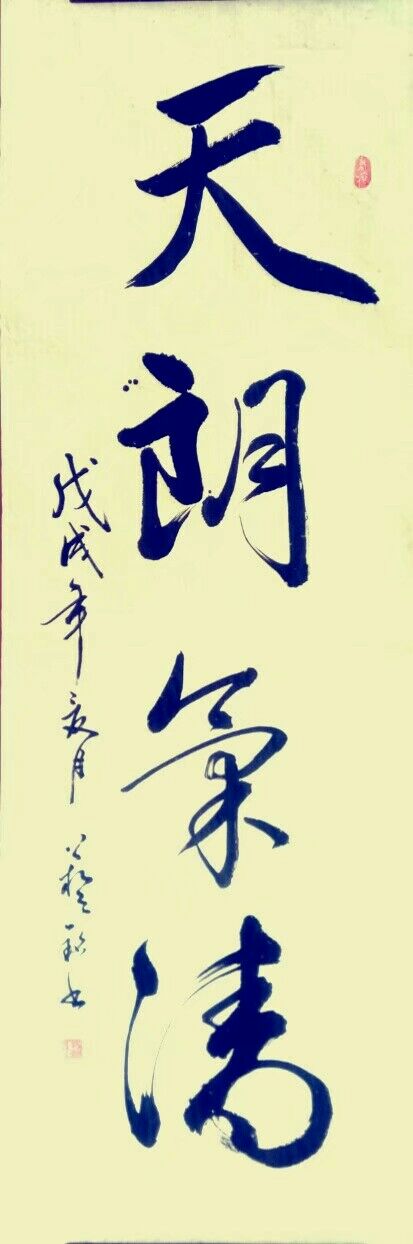 天朗氣清
戊戌年夏月